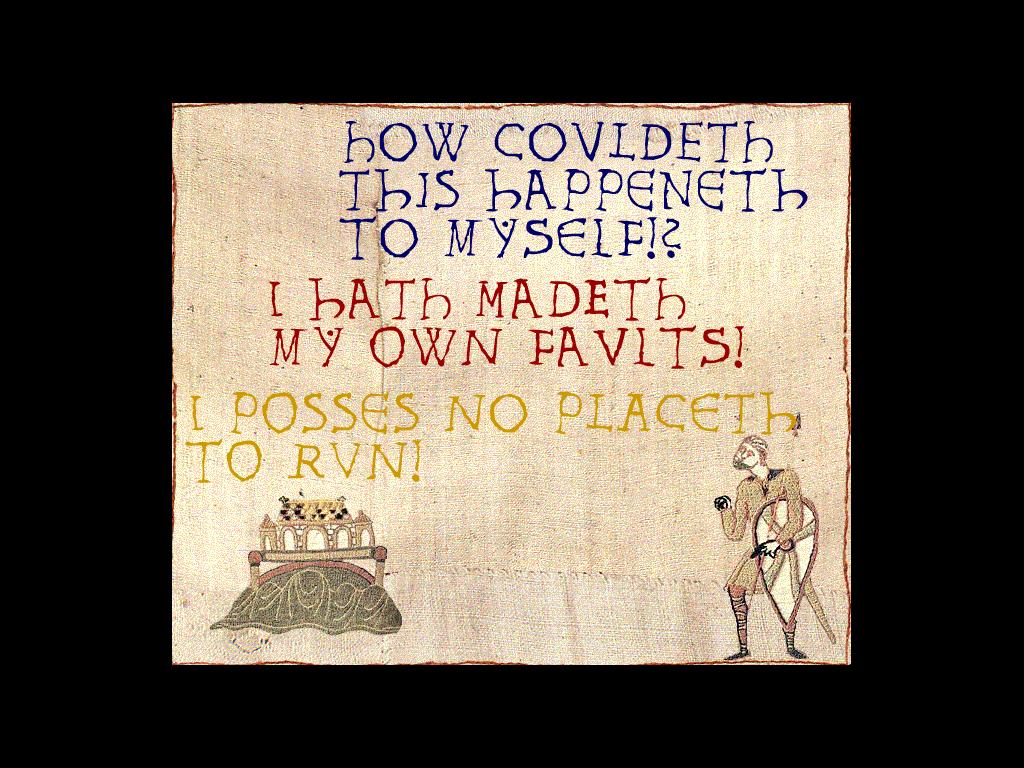 HOW COVLDETH
THIS HAPPENETH
TO MYSELF!?
I HATH MADETH
MY OWN FAVLTS!
I POSSES NO PLACETH
TO RVN!